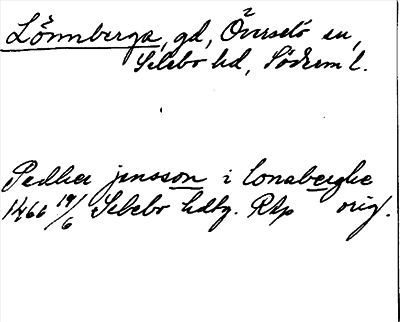 Lönnberga, gd, Överselö sn,
Selebo hd, Söderm l.
Pedher jensson i lonaberghe
1466 19/6 Selebo hdtg. Rap orig.